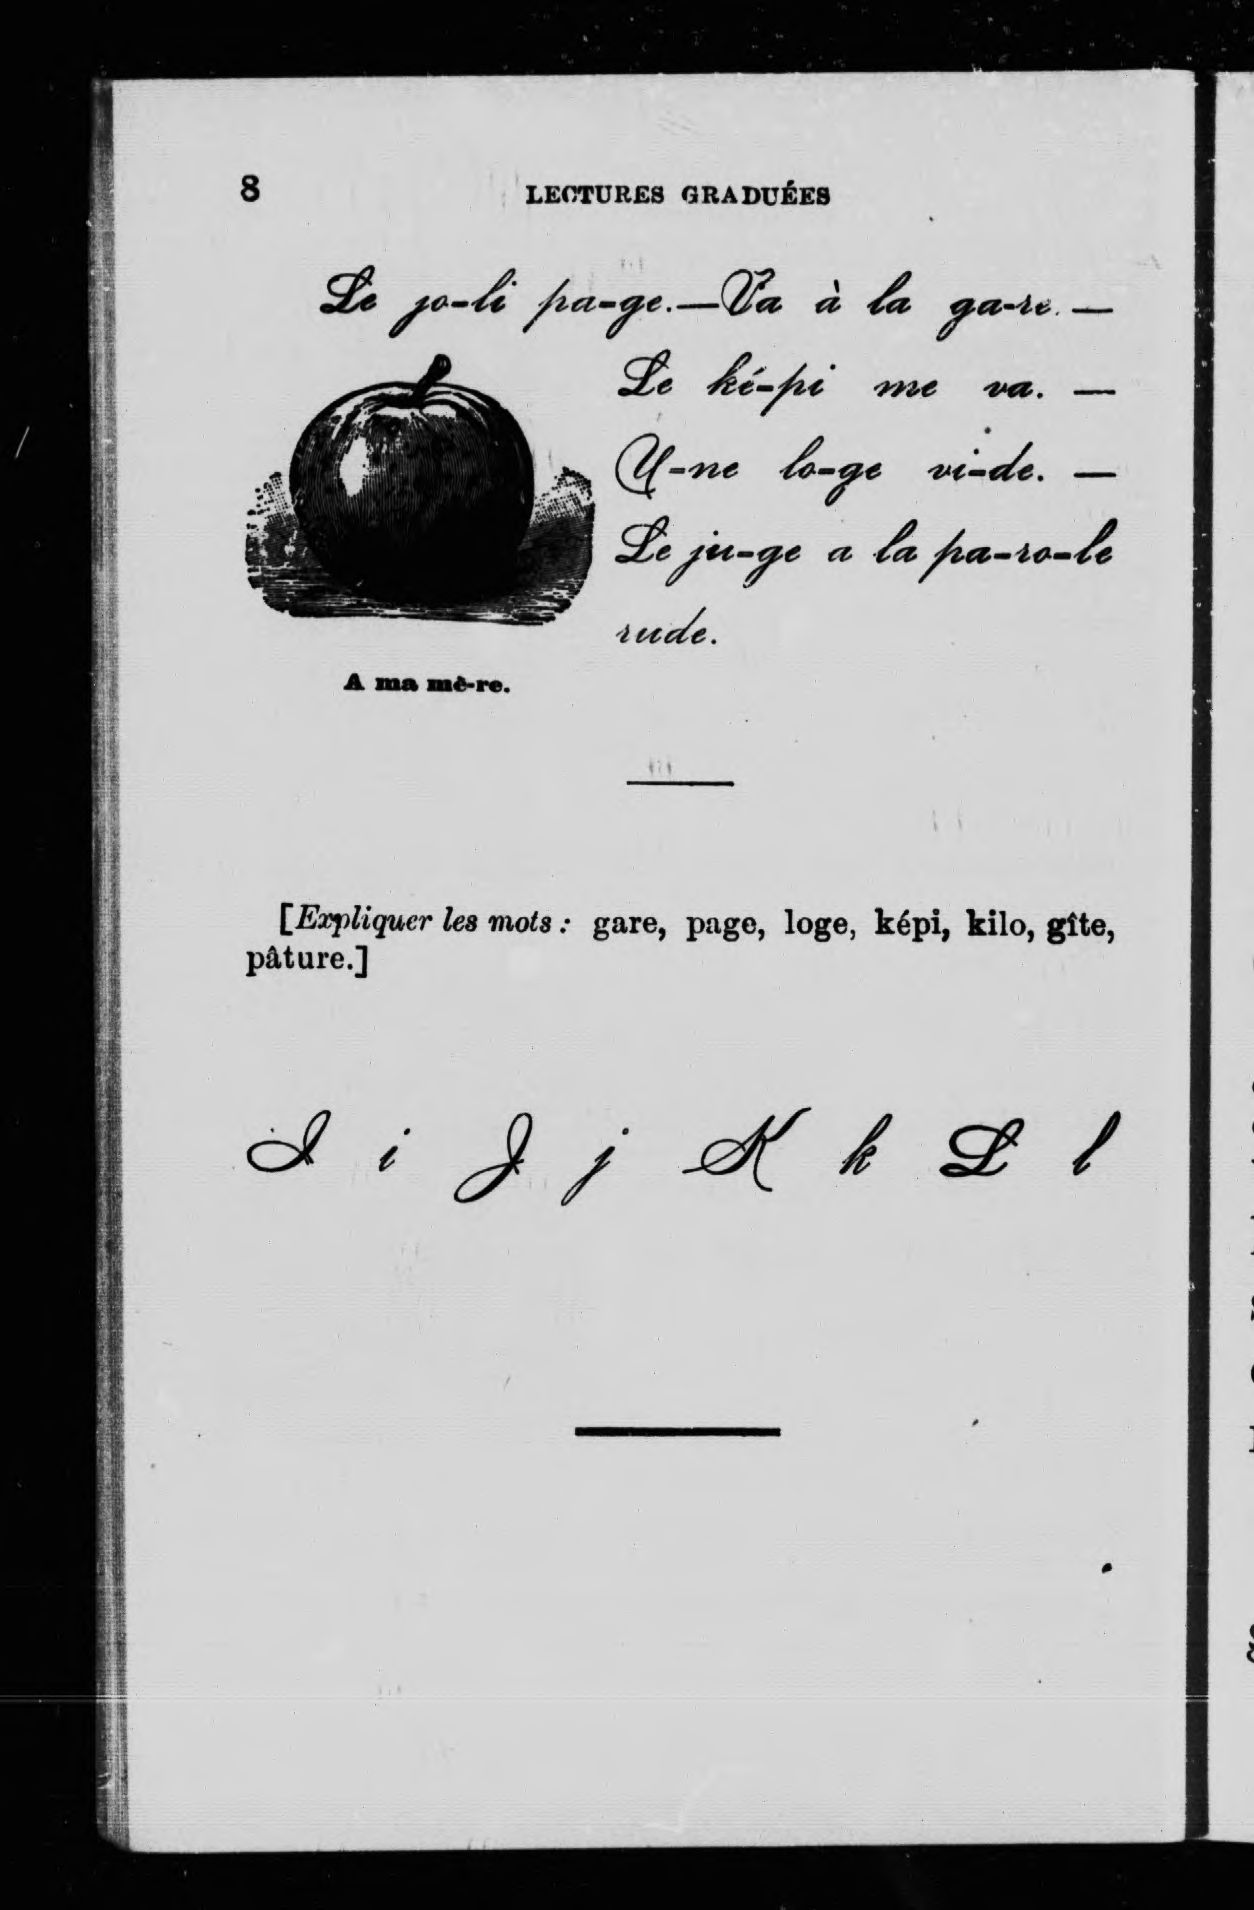 8
LECTURES GRADUÉES
Le jo-li pa-ge.—Va à la ga-re.—
Le ké-pi me va. —
U-ne lo-ge vi-de. —
Le ju-ge a la pa-ro-le
rude.
A ma mè-re.
[Expliquer les mots : gare, page, loge, képi, kilo, gîte,
pâture.]
I i J j K k L l